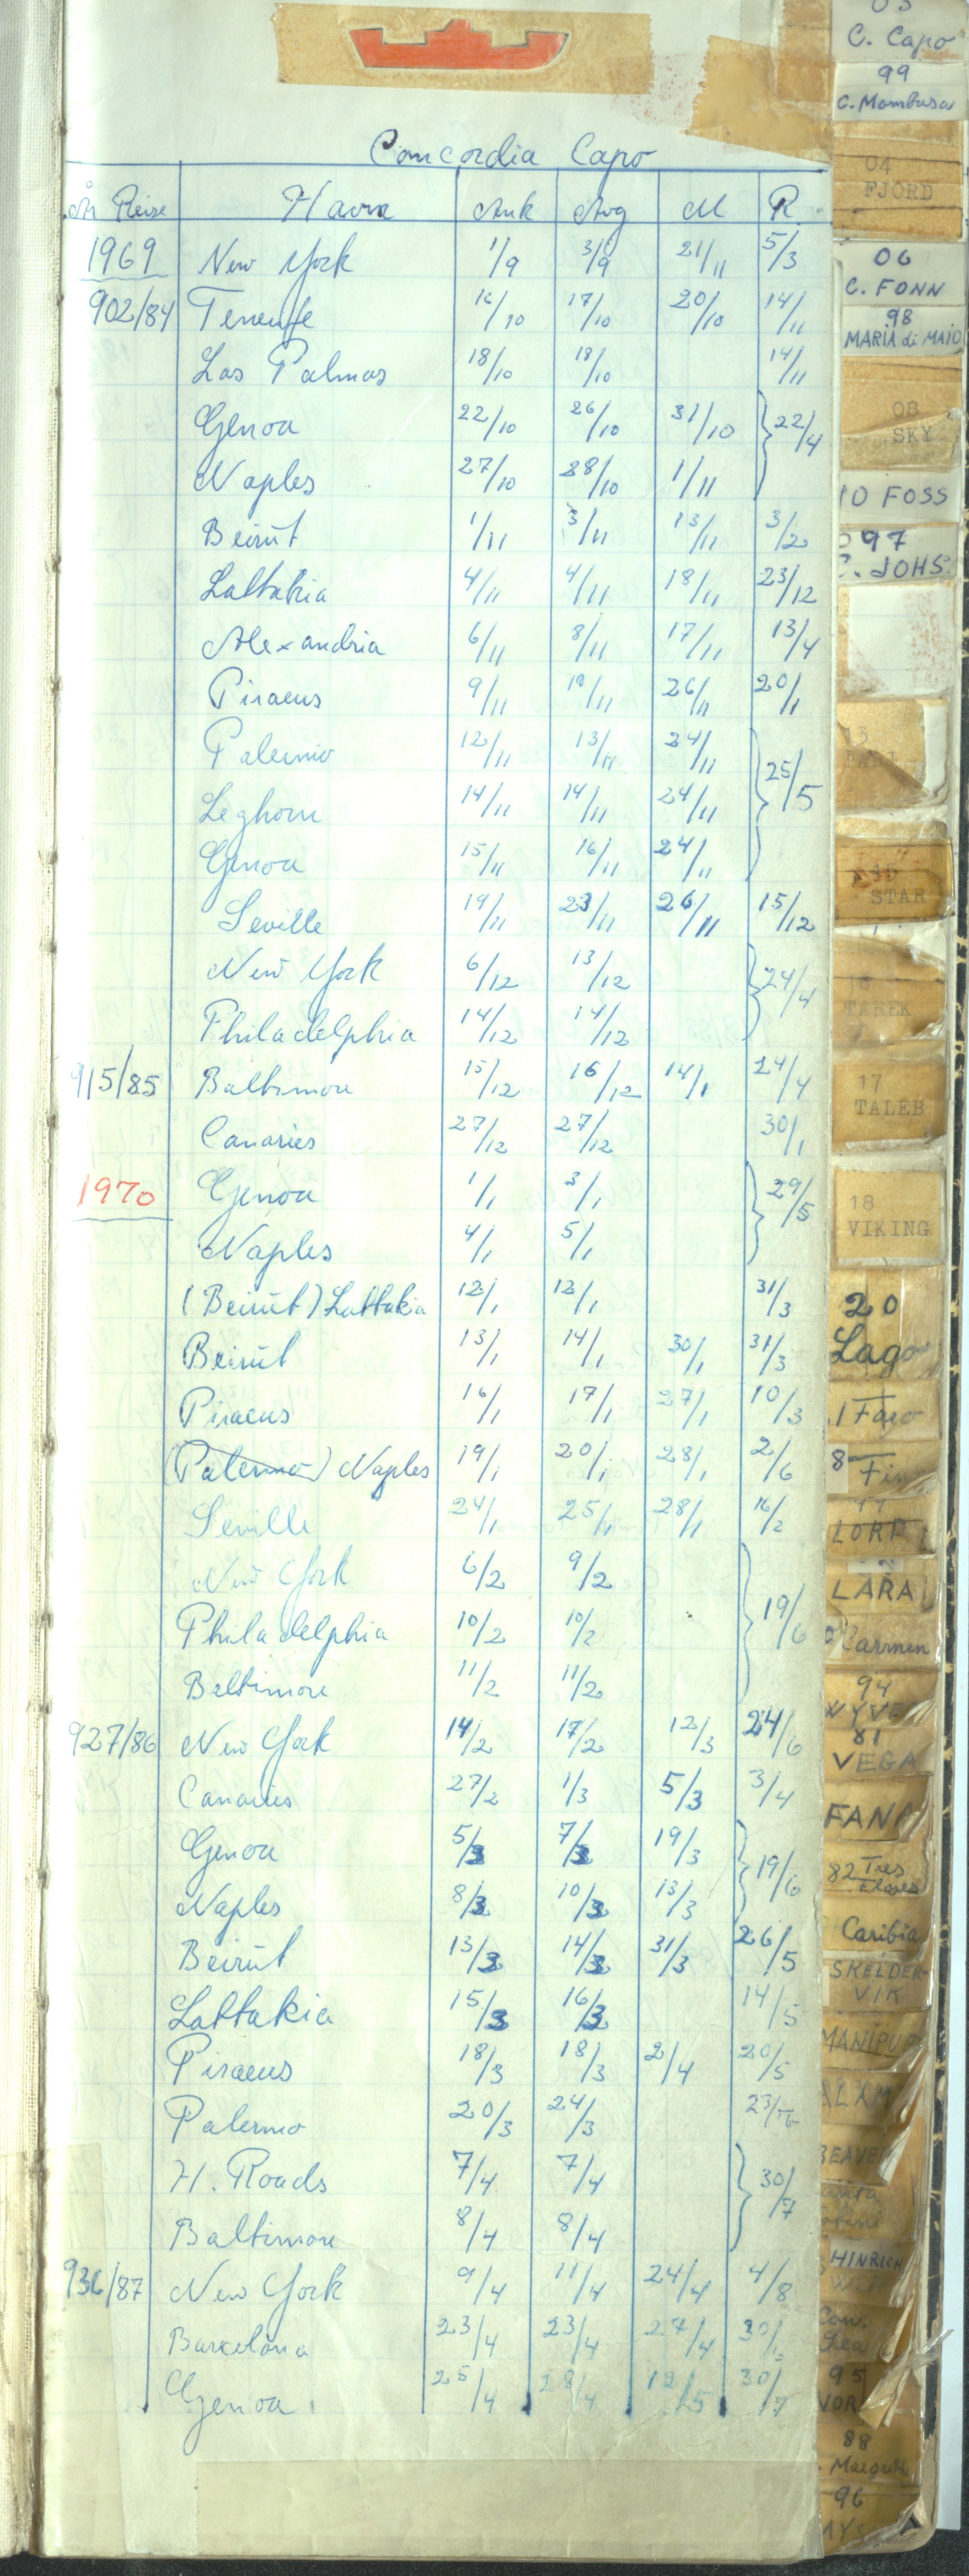 Concordia Capo
År Reise Havn Ank Avg M R
1969 New York 1/9 3/9 21/11 5/3
902/84 Tenerife 16/10 17/10 20/10 14/11
Las Palmas 18/10 18/10 14/11
Genoa 22/10 26/10 31/10 } 22/4
Naples 27/10 28/10 1/11
Beirut 1/11 3/11 13/11 3/2
Lattakia 4/11 4/11 18/11 23/12
Alexandria 6/11 8/11 17/11 13/4
Piraeus 9/11 10/11 26/11 20/1
Palermo 12/11 13/11 24/11 } 25/5
Leghorn 14/11 14/11 24/11
Genoa 15/11 16/11 24/11
Seville 19/11 23/11 26/11 15/12
New York 6/12 13/12 } 24/4
Philadelphia 14/12 14/12
915/85 Baltimore 15/12 16/12 14/1 24/4
Canaries 27/12 27/12 30/1
1970 Genoa 1/1 3/1 } 29/5
Naples 4/1 5/1
(Beirut) Lattakia 12/1 12/1 31/3
Beirut 13/1 14/1 30/1 31/3
Piraeus 16/1 17/1 27/1 10/3
(Palermo) Naples 19/1 20/1 28/1 2/6
Seville 24/1 25/1 28/1 16/2
New York 6/2 9/2 } 19/6
Philadelphia 10/2 10/2
Baltimore 11/2 11/2
927/86 New York 14/2 17/2 12/3 24/6
Canaries 27/2 1/3 5/3 3/4
Genoa 5/3 7/3 19/3 } 19/6
Naples 8/3 10/3 13/3
Beirut 13/3 14/3 31/3 26/5
Lattakia 15/3 16/3 14/5
Piraeus 18/3 18/3 2/4 20/5
Palermo 20/3 24/3
H. Roads 7/4 7/4 } 30/7
Baltimore 8/4 8/4
936/87 New York 9/4 11/4 24/4 4/8
Barcelona 23/4 23/4 27/4
Genoa 25/4 28/4 12/5 30/7
03
C. Capo
99
C. Mombasa
04
FJORD
06
C. FONN
98
MARIA di MAIO
08
SKY
10 FOSS
97
C. JOHS
STAR
16
TAREK
17
TALEB
18
VIKING
20
Lago
Faro
8 Finn
LARA
Carmen
94
81
VEGA
82 Tres
Caribia
SKELDER-
VIK
MANIPUR
HINRICH
95
88
96